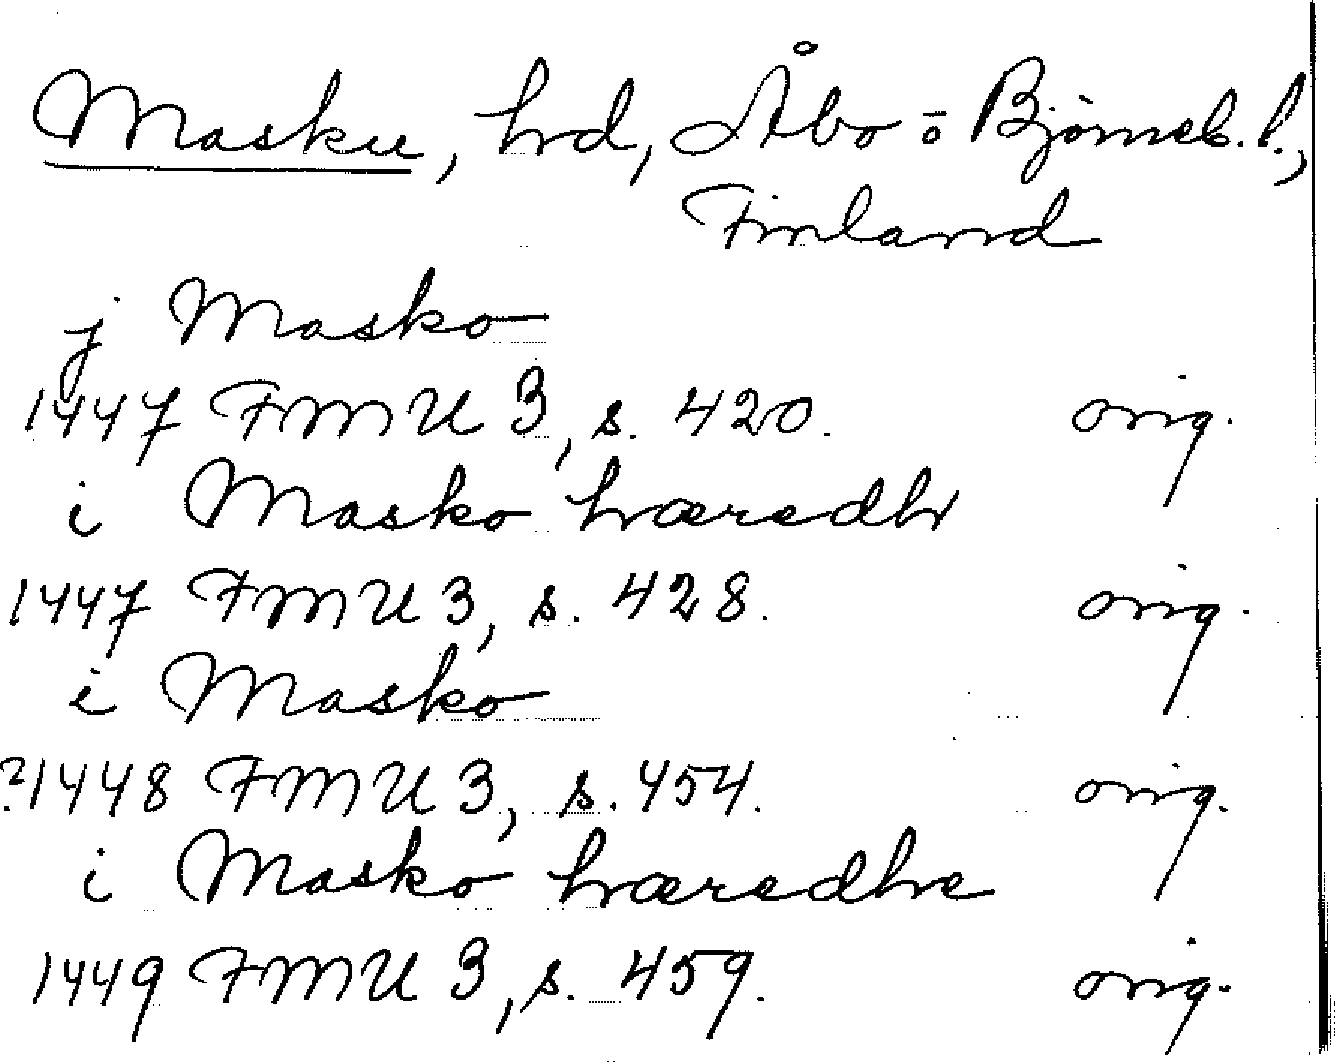 Masku, hd, Åbo o Björneb. l.,
Finland
j Masko
1447 FMU 3, s. 420. orig.
i Masko hæredh
1447 FMU 3, s. 428. orig.
i Masko
?1448 FMU 3, s. 454. orig.
i Masko hæredhe
1449 FMU 3, s. 459. orig.